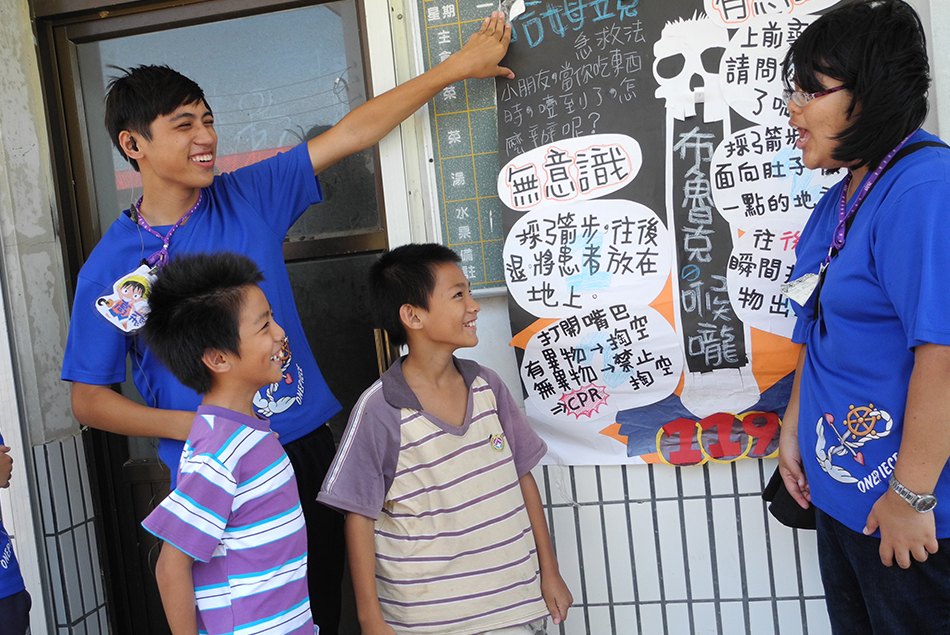 星期
主食
菜
菜
湯
水果
備註
一
哈姆立克
急救法
小朋友,當你吃東西
時,噎到了,怎
麼辦呢?
無意識
採弓箭步,往後
退,將患者放在
地上。
打開嘴巴
有異物→掏空
無異物→禁止
掏空
⇒CPR
布魯克の喉嚨
119
上前
請問
了嗎
採弓箭步
面向肚子
一點的地
往
瞬間
物出
ONEPIECE
ONEPIECE